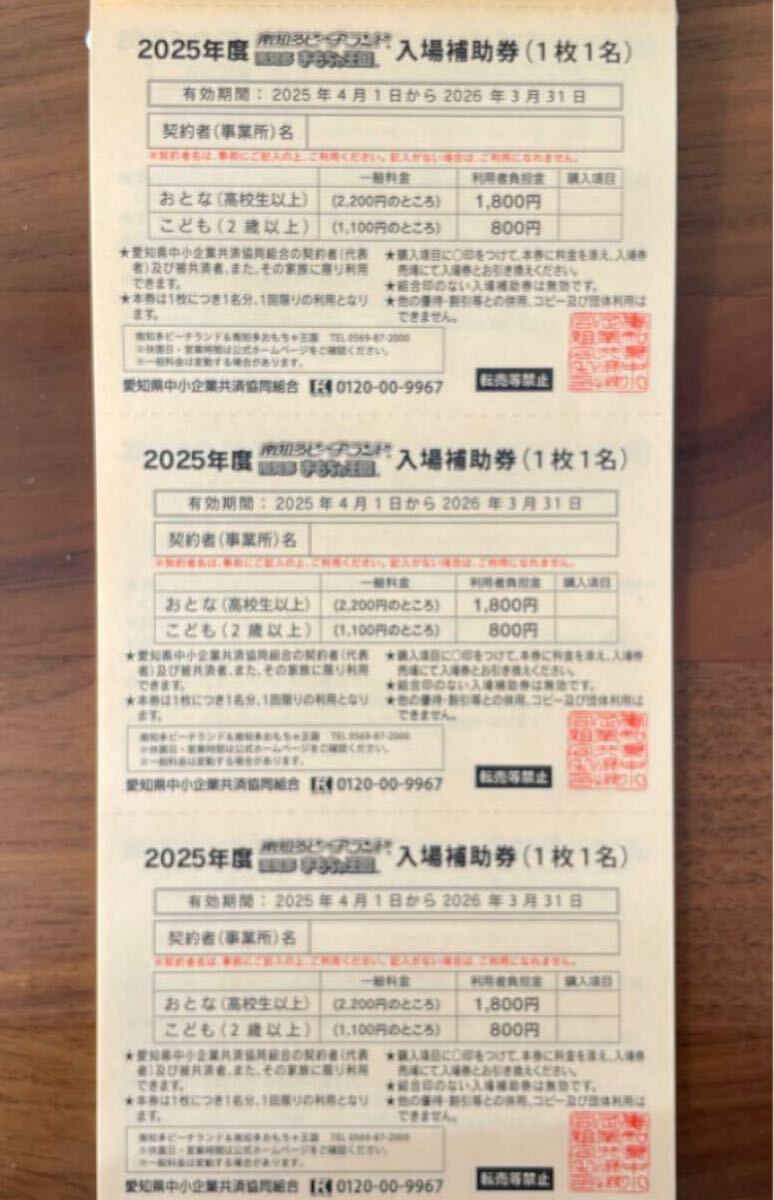 2025年度 南知多ビーチランド 南知多おもちゃ王国 入場補助券(1枚1名)
有効期間：2025年4月1日から2026年3月31日
契約者(事業所)名
※契約者名は、事前にご記入の上、ご利用ください。記入がない場合は、ご利用になれません。
一般料金 利用者負担金 購入項目
おとな(高校生以上) (2,200円のところ) 1,800円
こども(2歳以上) (1,100円のところ) 800円
★愛知県中小企業共済協同組合の契約者(代表
者)及び被共済者、また、その家族に限り利用
できます。
★本券は1枚につき1名分、1回限りの利用となり
ます。
★購入項目に○印をつけて、本券に料金を添え、入場券
売場にて入場券とお引き換えください。
★組合印のない入場補助券は無効です。
★他の優待・割引等との併用、コピー及び団体利用は
できません。
南知多ビーチランド&南知多おもちゃ王国 TEL 0569-87-2000
※休園日・営業時間は公式ホームページをご確認ください。
※一般料金は変動する場合があります。
愛知県中小企業共済協同組合 0120-00-9967
転売等禁止
2025年度 南知多ビーチランド 南知多おもちゃ王国 入場補助券(1枚1名)
有効期間：2025年4月1日から2026年3月31日
契約者(事業所)名
※契約者名は、事前にご記入の上、ご利用ください。記入がない場合は、ご利用になれません。
一般料金 利用者負担金 購入項目
おとな(高校生以上) (2,200円のところ) 1,800円
こども(2歳以上) (1,100円のところ) 800円
★愛知県中小企業共済協同組合の契約者(代表
者)及び被共済者、また、その家族に限り利用
できます。
★本券は1枚につき1名分、1回限りの利用となり
ます。
★購入項目に○印をつけて、本券に料金を添え、入場券
売場にて入場券とお引き換えください。
★組合印のない入場補助券は無効です。
★他の優待・割引等との併用、コピー及び団体利用は
できません。
南知多ビーチランド&南知多おもちゃ王国 TEL 0569-87-2000
※休園日・営業時間は公式ホームページをご確認ください。
※一般料金は変動する場合があります。
愛知県中小企業共済協同組合 0120-00-9967
転売等禁止
2025年度 南知多ビーチランド 南知多おもちゃ王国 入場補助券(1枚1名)
有効期間：2025年4月1日から2026年3月31日
契約者(事業所)名
※契約者名は、事前にご記入の上、ご利用ください。記入がない場合は、ご利用になれません。
一般料金 利用者負担金 購入項目
おとな(高校生以上) (2,200円のところ) 1,800円
こども(2歳以上) (1,100円のところ) 800円
★愛知県中小企業共済協同組合の契約者(代表
者)及び被共済者、また、その家族に限り利用
できます。
★本券は1枚につき1名分、1回限りの利用となり
ます。
★購入項目に○印をつけて、本券に料金を添え、入場券
売場にて入場券とお引き換えください。
★組合印のない入場補助券は無効です。
★他の優待・割引等との併用、コピー及び団体利用は
できません。
南知多ビーチランド&南知多おもちゃ王国 TEL 0569-87-2000
※休園日・営業時間は公式ホームページをご確認ください。
※一般料金は変動する場合があります。
愛知県中小企業共済協同組合 0120-00-9967
転売等禁止